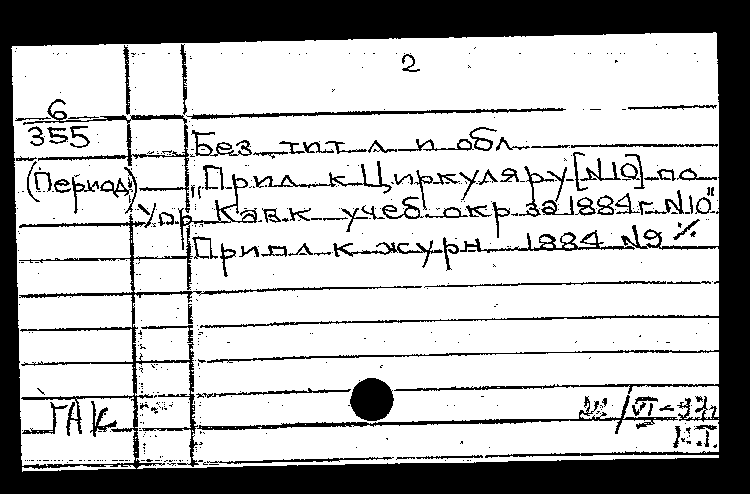 2
6
355
(Период)
Без тит л и обл
"Прил к Циркуляру [N10] по
Упр Кавк учеб. окр за 1884 г. N10"
Припл к журн 1884 N9 ·/.
ГАК
/VI-97г
Н.Т.